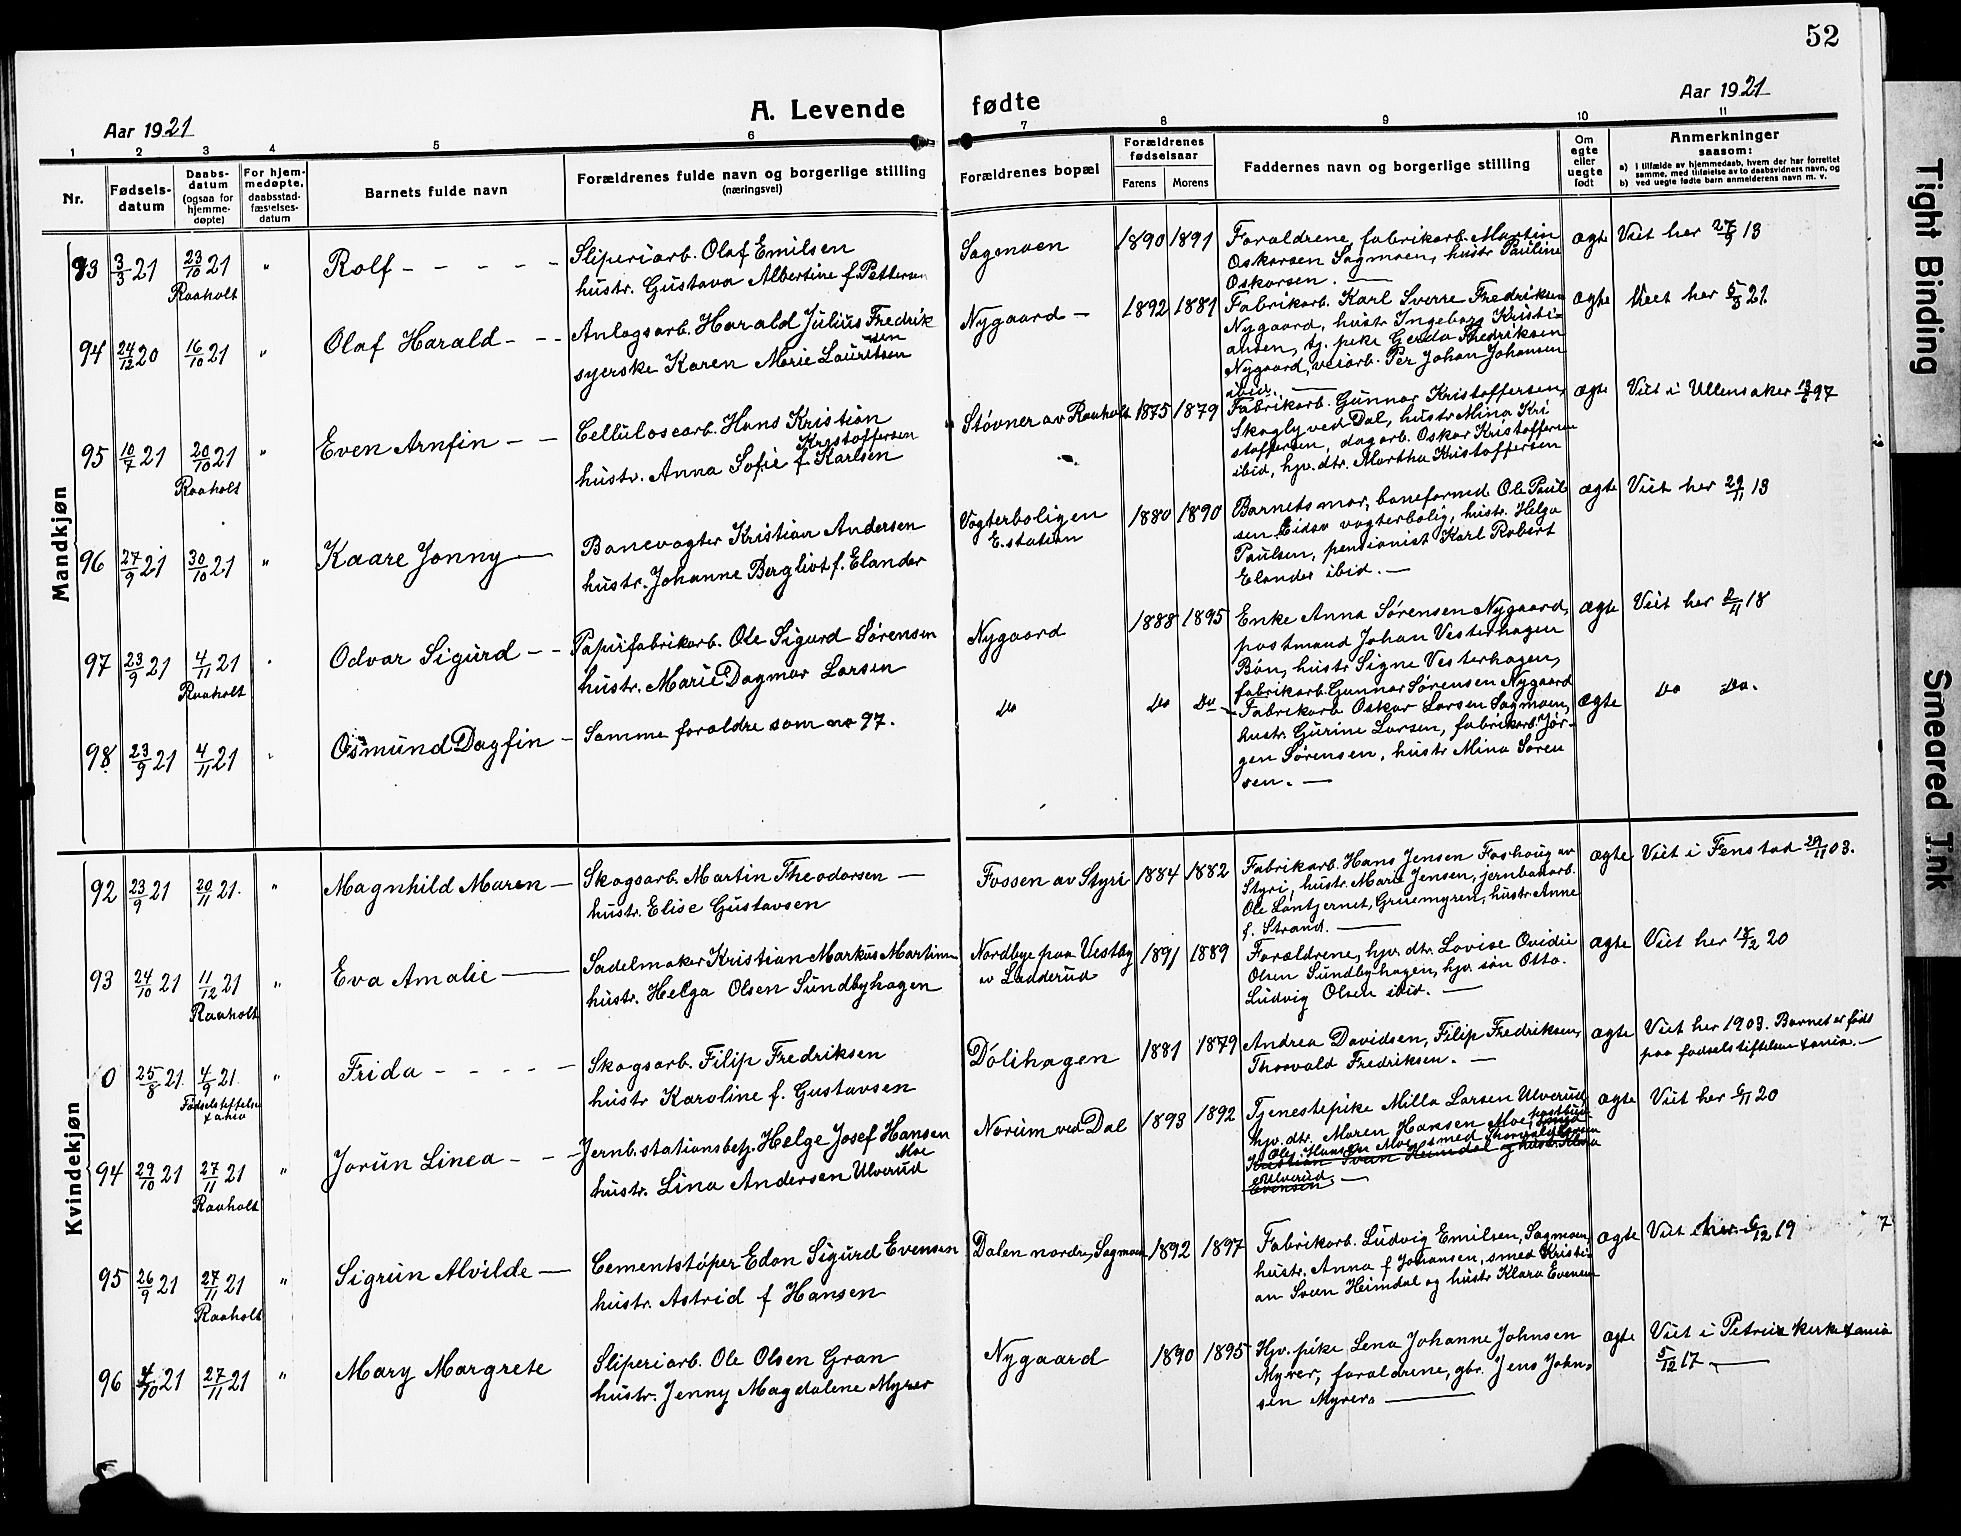 52
A. Levende fødte
Aar 1921
Aar 1921
1 2 3 4 5 6 7 8 9 10 11
Nr.
Fødsels-
datum
Daabs-
datum
(ogsaa for
hjemme-
døpte)
For hjem-
medøpte,
daabsstad-
fæstelses-
datum
Barnets fulde navn
Forældrenes fulde navn og borgerlige stilling
(næringsvei)
Forældrenes bopæl
Forældrenes
fødselsaar
Farens Morens
Faddernes navn og borgerlige stilling
Om
egte
eller
uegte
født
Anmerkninger
saasom:
a) i tilfælde av hjemmedaab, hvem der har forrettet
samme, med tilføielse av to daabsvidners navn, og
b) ved uegte fødte barn anmelderens navn m. v.
Mandkjøn
93 3/3 21 23/10 21 " Rolf - - - - -
Raaholt
Sliperiarb. Olaf Emilsen
hustr. Gustava Albertine f. Pettersen
Sagmoen
1890 1891
Forældrene, fabrikarb. Martin
Oskarsen Sagmoen, hustr. Pauline
Oskarsen. —
ægte
Viet her 27/9 13
94 24/12 20 16/10 21 " Olaf Harald - - -
Anlægsarb. Harald Julius Fredrik
sen
syerske Karen Marie Lauritsen
Nygaard -
1892 1881
Fabrikarb. Karl Sverre Fredriksen
Nygaard, hustr. Ingeborg Kristi-
ansen, tj. pike Gerda Fredriksen
Nygaard, veiarb. Per Johan Johansen
ibid. —
ægte
Viet her 5/3 21
95 10/7 21 20/10 21 " Even Arnfin - -
Raaholt
Cellulosearb. Hans Kristian
Kristoffersen
hustr. Anna Sofie f. Karlsen
Støvner av Raaholt
1875 1879
Fabrikarb. Gunnar Kristoffersen,
Skogly ved Dal, hustr. Mina Kri
stoffersen, dagarb. Oskar Kristoffersen
ibid, hjv. dtr. Martha Kristoffersen
ægte
Viet i Ullensaker 97
96 27/9 21 30/10 21 " Kaare Jonny —
Banevogter Kristian Andersen
hustr. Johanne Bergliot f. Elander
Vogterboligen
E. station
1880 1890
Barnets mor, baneformed Ole Paul
sen Eidsv vogterbolig, hustr. Helga
Paulsen, pensionist Karl Robert
Elander ibid. —
ægte
Viet her 29/11 13
97 23/9 21 4/11 21 " Odvar Sigurd - -
Raaholt
Papirfabrikarb. Ole Sigurd Sørensen
hustr. Marie Dagmar Larsen
Nygaard
1888 1895
Enke Anna Sørensen Nygaard,
postmand Johan Vesterhagen
Bøn, hustr. Signe Vesterhagen,
fabrikarb. Gunnar Sørensen Nygaard
ægte
Viet her 2/11 18
98 23/9 21 4/11 21 " Osmund Dagfin -
Samme forældre som no 97.
Do
Do Do
Fabrikarb Oskar Larsen Sagmoen,
hustr. Gurine Larsen, fabrikarb. Jør-
gen Sørensen, hustr Mina Søren
sen. —
ægte
Do Do.
Kvindekjøn
92 23/9 21 20/11 21. " Magnhild Maren —
Skogsarb. Martin Theodorsen —
hustr. Elise Gustavsen
Fossen av Styri
1884 1882
Fabrikarb. Hans Jensen Foshoug av
Styri, hustr. Marie Jensen, jernbanarb.
Ole Løntjernet, Gruemyren, hustr. Anne
f. Strand. —
ægte
Viet i Fenstad 29/11 03.
93 24/10 21 11/12 21 " Eva Amalie —
Raaholt
Sadelmaker Kristian Markus Martinsen
hustr. Helga Olsen Sundbyhagen
Nordbye paa Vestby
av Ladderud
1891 1889
Forældrene, hjv. dtr. Lovise Ovidie
Olsen Sundbyhagen, hjv. søn Otto.
Ludvig Olsen ibid. —
ægte
Viet her 18/12 20
0 25/8 21. 4/9 21. " Frida - - - - -
Fødselstiftelse
Xania
Skogsarb. Filip Fredriksen
hustr Karoline f. Gustavsen
Dølihagen
1881 1879
Andrea Davidsen, Filip Fredriksen,
Thorvald Fredriksen. —
ægte
Viet her 1903. Barnet er født
paa fødselstiftelsen Xania. —
94 29/10 21 27/11 21 " Jorun Linea - - -
Raaholt
Jernb. stationsbetj. Helge Josef Hansen
Moe
hustr. Lina Andersen Ulverud
Norum ved Dal
1893 1892
Tjenestepike Milla Larsen Ulverud,
hjv. dtr. Maren Hansen Moe,
Ole Hansen Moe, smed
Kristian Sven Heimdal og hustr. Klara
Ulverud
Evensen. —
ægte
Viet her 6/11 20
95 26/9 21 27/11 21 " Sigrun Alvilde —
Raaholt
Cementstøper Edon Sigurd Evensen
hustr. Astrid f Hansen
Dalen nordre, Sagmoen
1892 1897
Fabrikarb. Ludvig Emilsen, Sagmoen,
hustr. Anna f Johansen, smed Kristi-
an Sven Heimdal og hustr Klara Evensen
ægte
Viet her 6/12 19
7
96 4/10 21 27/11 21 " Mary Margrete
Sliperiarb. Ole Olsen Gran
hustr. Jenny Magdalene Myrer
Nygaard
1890 1895
Hjv. pike Lena Johanne Johnsen
Myrer, forældrene, gbr. Jens John-
sen Myrer. —
ægte
Viet i Petri kerke Xania
5/12 17. —
Tight Binding
Smeared Ink